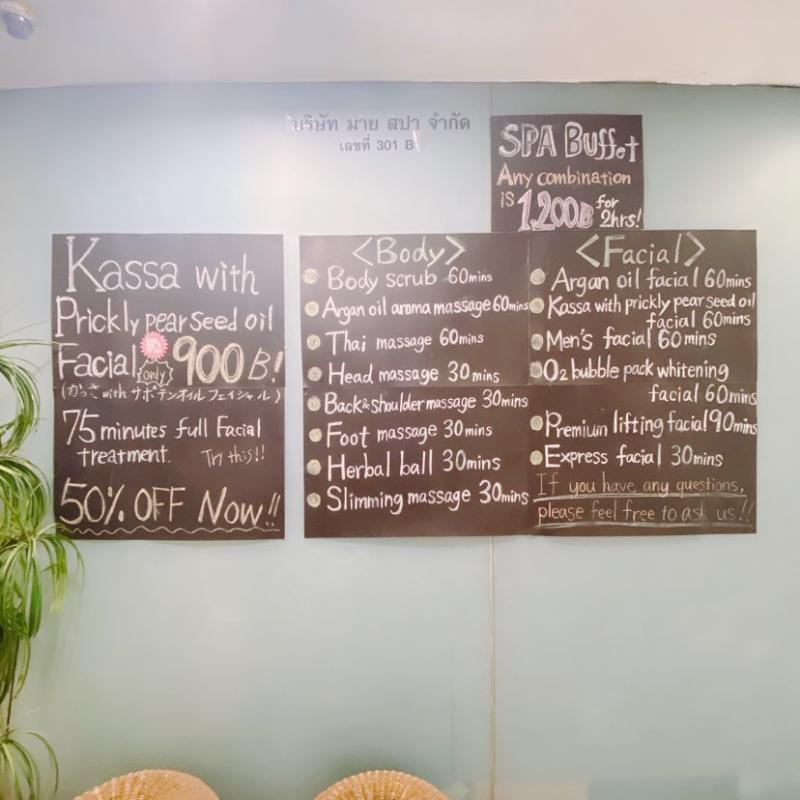 บริษัท มาย สปา จำกัด
เลขที่ 301 B
SPA Buffet
Any combination
is 1,200B for
2hrs!
Kassa with
Prickly pear seed oil
Facial only 900 B!
(かっさ with サボテンオイル フェイシャル)
75 minutes full Facial
treatment. Try this!!
50% OFF Now!!
<Body>
Body scrub 60mins
Argan oil aroma massage 60mins
Thai massage 60mins
Head massage 30mins
Back&shoulder massage 30mins
Foot massage 30mins
Herbal ball 30mins
Slimming massage 30mins
<Facial>
Argan oil facial 60mins
Kassa with prickly pear seed oil
facial 60mins
Men's facial 60mins
O2 bubble pack whitening
facial 60mins
Premium lifting facial 90mins
Express facial 30mins
If you have any questions,
please feel free to ask us!!